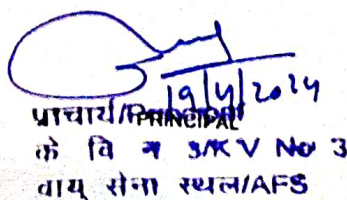 19/4/2024
प्राचार्य/PRINCIPAL
के वि न 3/K V No 3
वायु सेना स्थल/AFS